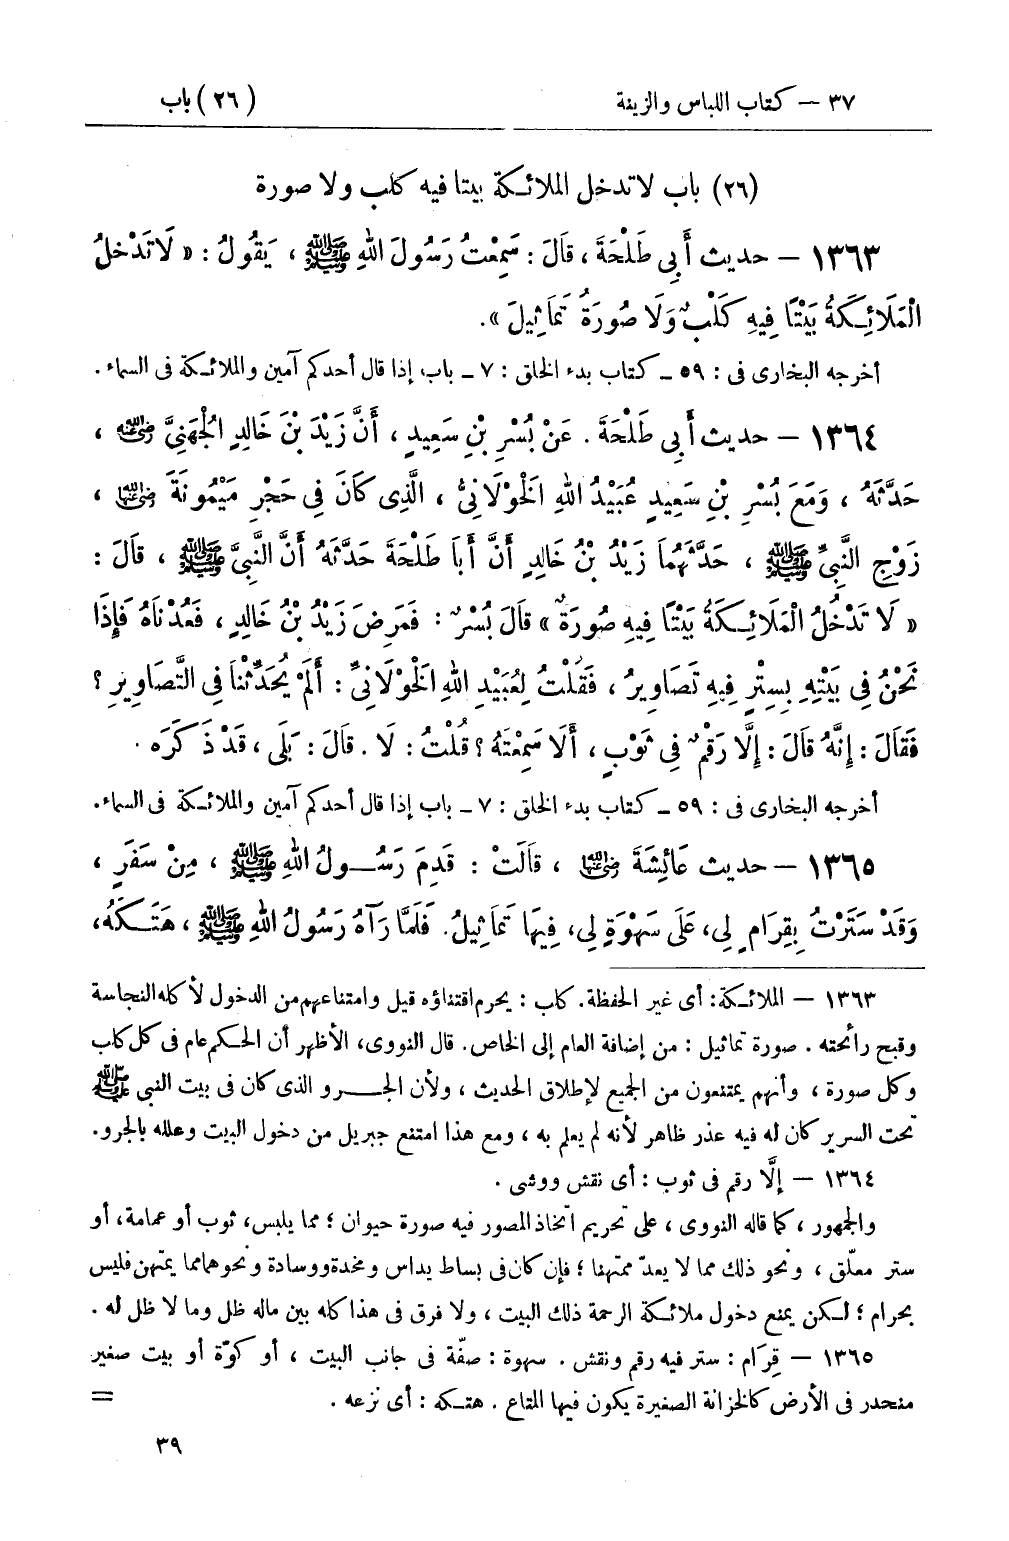 ٣٧ — كتاب اللباس والزينة (٢٦) باب
(٢٦) باب لا تدخل الملائكة بيتا فيه كلب ولا صورة
١٣٦٣ — حديث أَبِي طَلْحَةَ ، قَالَ : سَمِعْتُ رَسُولَ اللهِ ﷺ ، يَقُولُ : « لَا تَدْخُلُ
الْمَلَائِكَةُ بَيْتًا فِيهِ كَلْبٌ وَلَا صُورَةُ تَمَاثِيلَ ».
أخرجه البخارى فى : ٥٩ ـ كتاب بدء الخلق : ٧ ـ باب إذا قال أحدكم آمين والملائكة فى السماء .
١٣٦٤ — حديث أَبِي طَلْحَةَ . عَنْ بُسْرِ بْنِ سَعِيدٍ ، أَنَّ زَيْدَ بْنَ خَالِدٍ الْجُهَنِيَّ رضي الله عنه ،
حَدَّثَهُ ، وَمَعَ بُسْرِ بْنِ سَعِيدٍ عُبَيْدُ اللهِ الْخَوْلَانِيُّ ، الَّذِي كَانَ فِي حَجْرِ مَيْمُونَةَ رضي الله عنها ،
زَوْجِ النَّبِيِّ ﷺ ، حَدَّثَهُمَا زَيْدُ بْنُ خَالِدٍ أَنَّ أَبَا طَلْحَةَ حَدَّثَهُ أَنَّ النَّبِيَّ ﷺ ، قَالَ :
« لَا تَدْخُلُ الْمَلَائِكَةُ بَيْتًا فِيهِ صُورَةٌ » قَالَ بُسْرٌ : فَمَرِضَ زَيْدُ بْنُ خَالِدٍ ، فَعُدْنَاهُ فَإِذَا
نَحْنُ فِي بَيْتِهِ بِسِتْرٍ فِيهِ تَصَاوِيرُ ، فَقُلْتُ لِعُبَيْدِ اللهِ الْخَوْلَانِيِّ : أَلَمْ يُحَدِّثْنَا فِي التَّصَاوِيرِ ؟
فَقَالَ : إِنَّهُ قَالَ : إِلَّا رَقْمٌ فِي ثَوْبٍ ، أَلَا سَمِعْتَهُ ؟ قُلْتُ : لَا . قَالَ : بَلَى ، قَدْ ذَكَرَه .
أخرجه البخارى فى : ٥٩ ـ كتاب بدء الخلق : ٧ ـ باب إذا قال أحدكم آمين والملائكة فى السماء.
١٣٦٥ — حديث عَائِشَةَ رضي الله عنها ، قَالَتْ : قَدِمَ رَسُولُ اللهِ ﷺ ، مِنْ سَفَرٍ ،
وَقَدْ سَتَرْتُ بِقِرَامٍ لِي، عَلَى سَهْوَةٍ لِي، فِيهَا تَمَاثِيلُ. فَلَمَّا رَآهُ رَسُولُ اللهِ ﷺ ، هَتَكَهُ،
١٣٦٣ — الملائكة: أى غير الحفظة. كلب : يحرم اقتناؤه قيل وامتناعهم من الدخول لأكله النجاسة
وقبح رائحته . صورة تماثيل : من إضافة العام إلى الخاص. قال النووى، الأظهر أن الحكم عام فى كل كلب
وكل صورة ، وأنهم يمتنعون من الجميع لإطلاق الحديث ، ولأن الجرو الذى كان فى بيت النبي ﷺ
تحت السرير كان له فيه عذر ظاهر لأنه لم يعلم به ، ومع هذا امتنع جبريل من دخول البيت وعلله بالجرو.
١٣٦٤ — إلَّا رقم فى ثوب : أى نقش ووشى .
والجمهور ، كما قاله النووى ، على تحريم اتخاذ المصور فيه صورة حيوان ؛ مما يلبس، ثوب أو عمامة، أو
ستر معلّق ، ونحو ذلك مما لا يعدّ ممتهنا ؛ فإن كان فى بساط يداس ومخدة ووسادة ونحوهما مما يمتهن فليس
بحرام ؛ لكن يمنع دخول ملائكة الرحمة ذلك البيت ، ولا فرق فى هذا كله بين ماله ظل وما لا ظل له .
١٣٦٥ — قِرَام : ستر فيه رقم ونقش . سهوة : صفّة فى جانب البيت ، أو كوّة أو بيت صغير
منحدر فى الأرض كالخزانة الصغيرة يكون فيها المتاع . هتكه : أى نزعه . =
٣٩